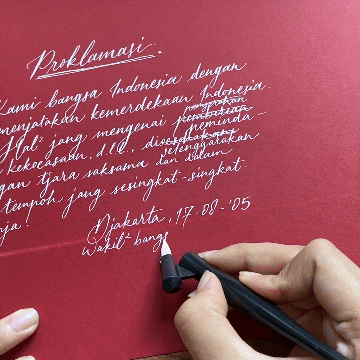 Proklamasi.
Kami bangsa Indonesia dengan
menjatakan kemerdekaan Indonesia.
Hal² jang mengenai pemindahan
pemindahan
kekoeasaan, d.l.l., diselenggarakan
dengan tjara saksama dan dalam
tempoh jang sesingkat-singkat
nja.
Djakarta, 17-08-'05
Wakil² bangs